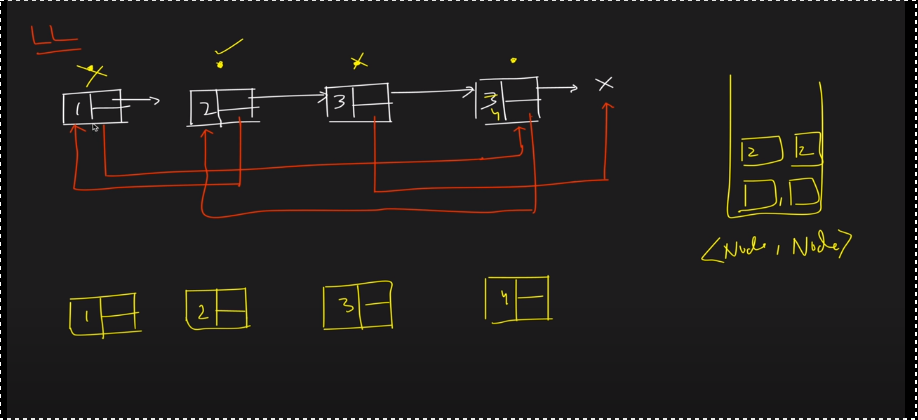 LL
1 2 3 3 X
4
2 2
<Node, Node>
1 2 3 4